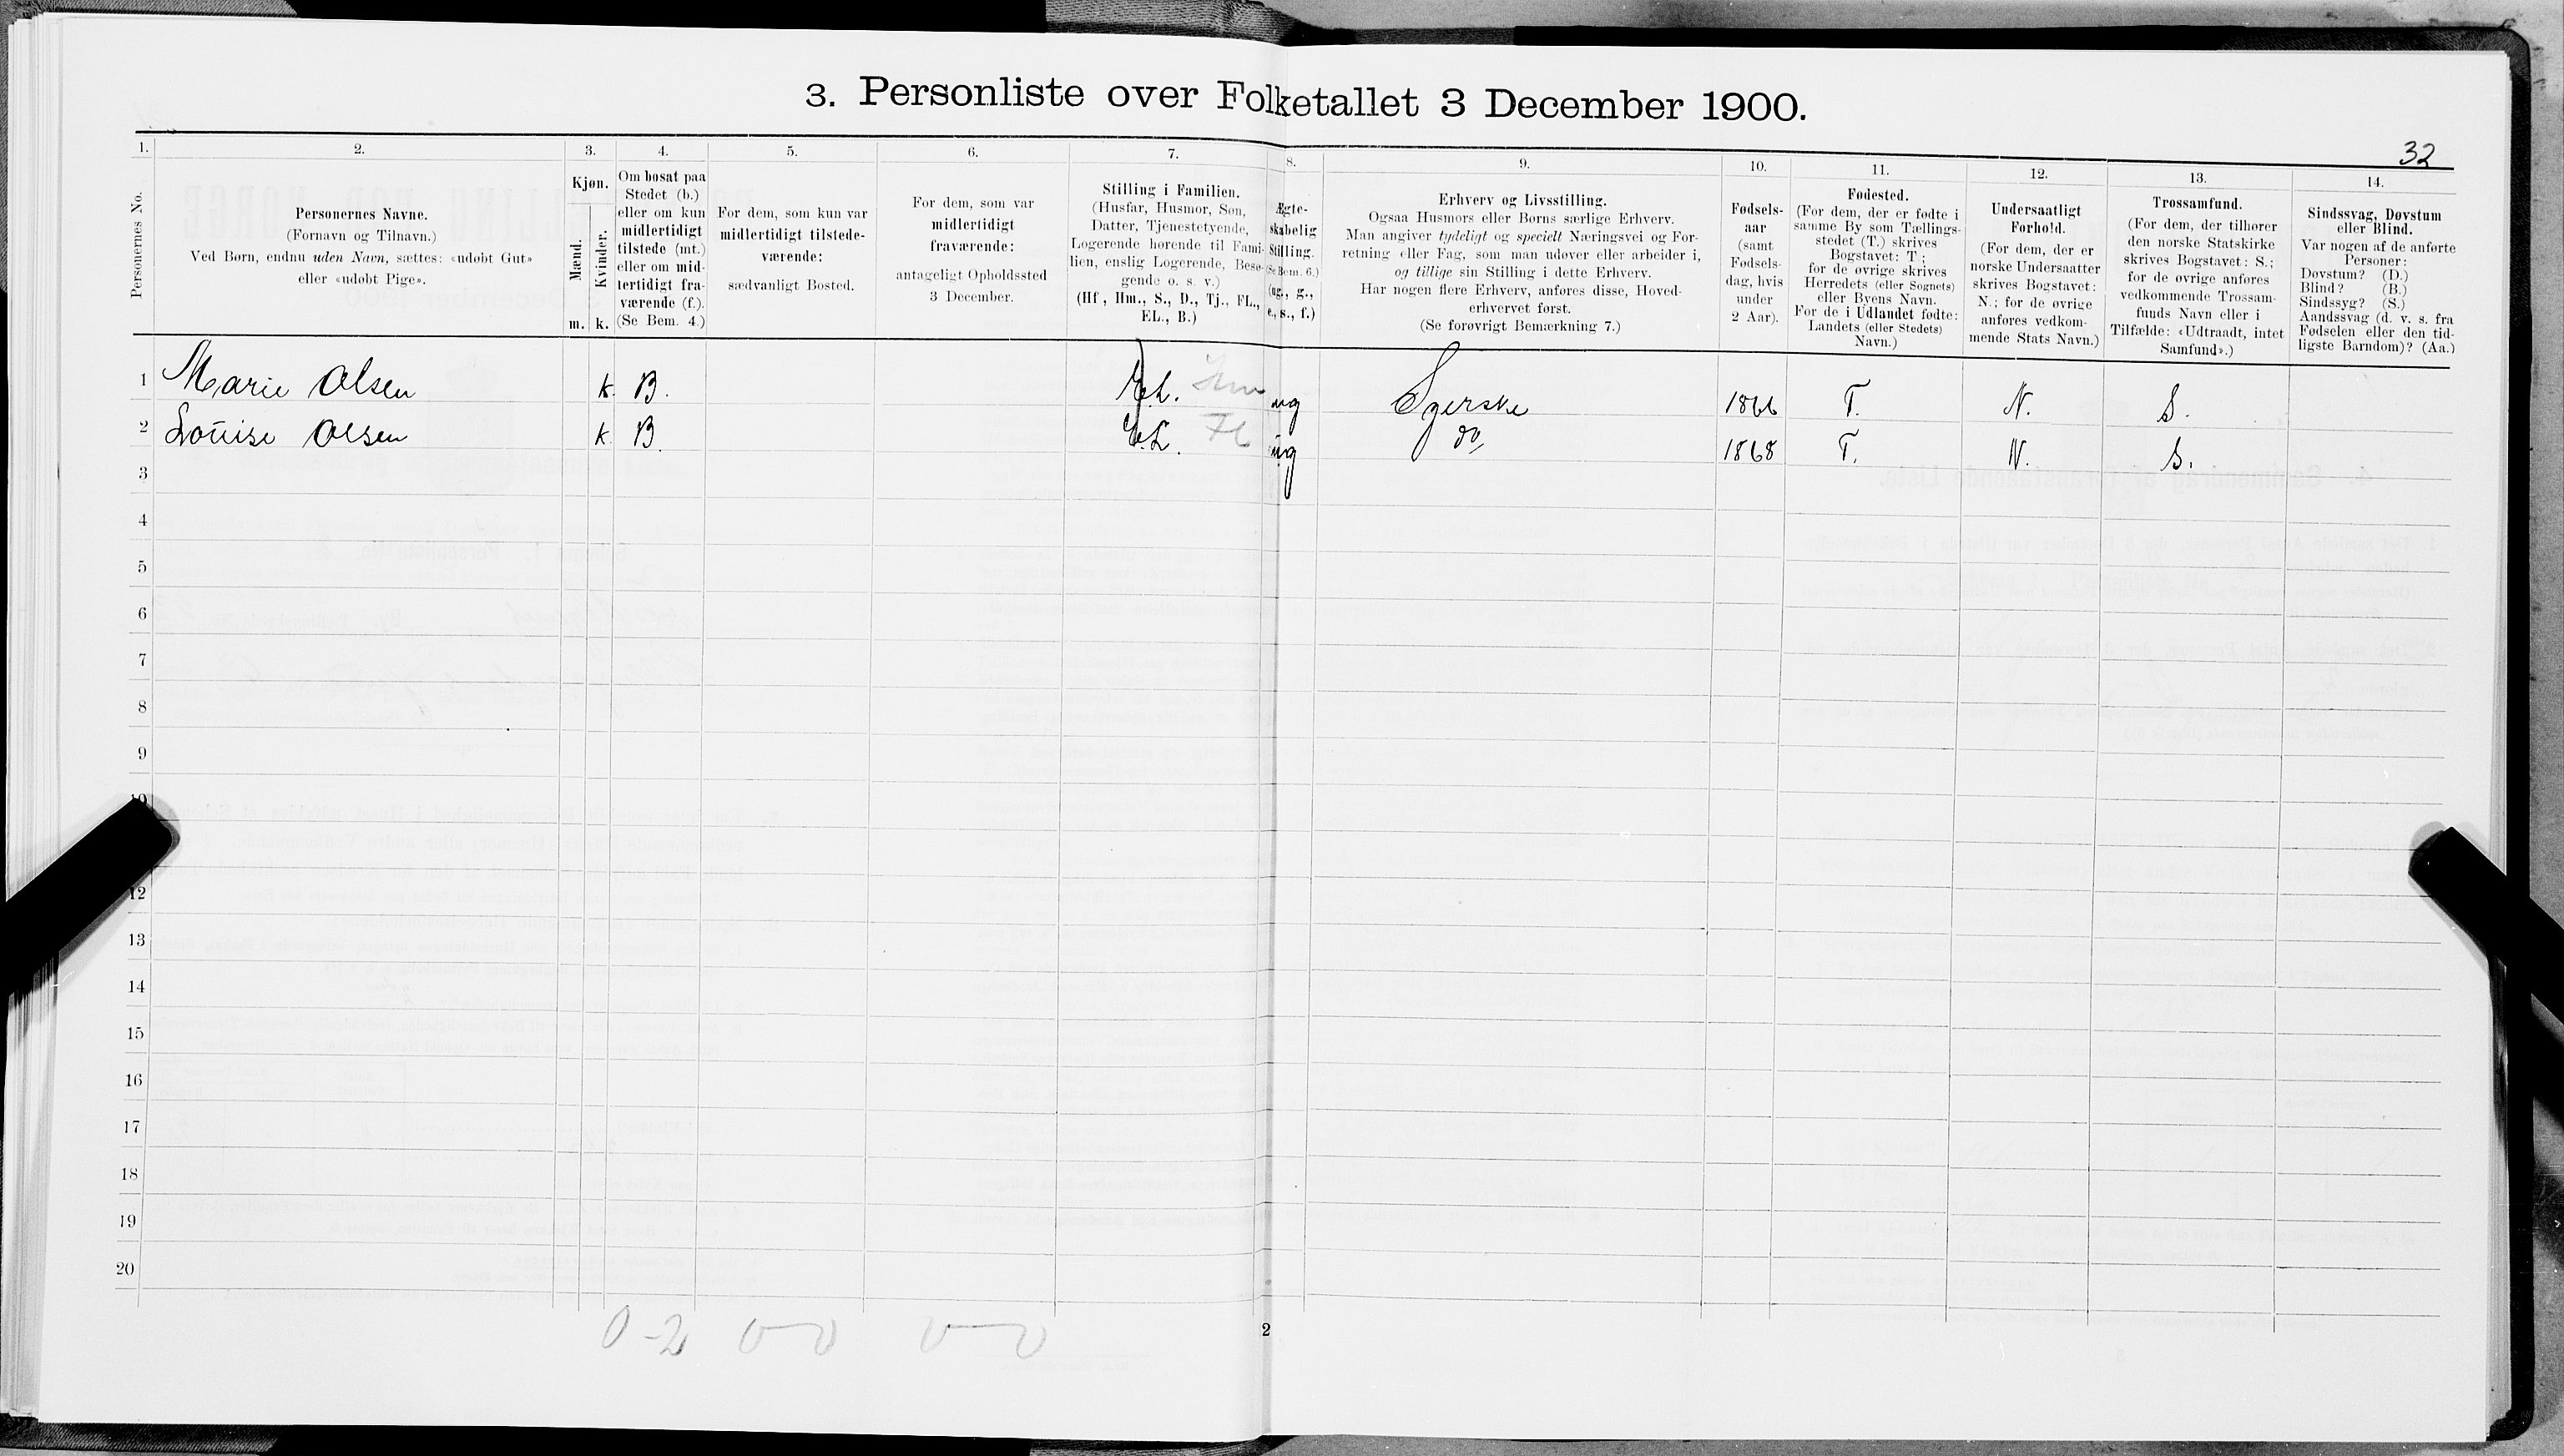 3. Personliste over Folketallet 3 December 1900.
32
1. 2. 3. 4. 5. 6. 7. 8. 9. 10. 11. 12. 13. 14.
Personernes No.
Personernes Navne.
(Fornavn og Tilnavn.)
Ved Børn, endnu uden Navn, sættes: «udøbt Gut»
eller «udøbt Pige».
Kjøn.
Mænd.
Kvinder.
m. k.
Om bosat paa
Stedet (b.)
eller om kun
midlertidigt
tilstede (mt.)
eller om mid-
lertidigt fra-
værende (f.).
(Se Bem. 4.)
For dem, som kun var
midlertidigt tilstede-
værende:
sædvanligt Bosted.
For dem, som var
midlertidigt
fraværende:
antageligt Opholdssted
3 December.
Stilling i Familien.
(Husfar, Husmor, Søn,
Datter, Tjenestetyende,
Logerende hørende til Fami-
lien, enslig Logerende, Besø-
gende o. s. v.)
(Hf., Hm., S., D., Tj., FL.,
EL., B.)
Ægte-
skabelig
Stilling.
(Se Bem. 6.)
(ug., g.,
e., s., f.)
Erhverv og Livsstilling.
Ogsaa Husmors eller Børns særlige Erhverv.
Man angiver tydeligt og specielt Næringsvei og For-
retning eller Fag, som man udøver eller arbeider i,
og tillige sin Stilling i dette Erhverv.
Har nogen flere Erhverv, anføres disse, Hoved-
erhvervet først.
(Se forøvrigt Bemærkning 7.)
Fødsels-
aar
(samt
Fødsels-
dag, hvis
under
2 Aar).
Fødested.
(For dem, der er fødte i
samme By som Tællings-
stedet (T.) skrives
Bogstavet: T;
for de øvrige skrives
Herredets (eller Sognets)
eller Byens Navn.
For de i Udlandet fødte:
Landets (eller Stedets)
Navn.)
Undersaatligt
Forhold.
(For dem, der er
norske Undersaatter
skrives Bogstavet:
N.; for de øvrige
anføres vedkom-
mende Stats Navn.)
Trossamfund.
(For dem, der tilhører
den norske Statskirke
skrives Bogstavet: S.;
for de øvrige anføres
vedkommende Trossam-
funds Navn eller i
Tilfælde: «Udtraadt, intet
Samfund».)
Sindssvag, Døvstum
eller Blind.
Var nogen af de anførte
Personer:
Døvstum? (D.)
Blind? (B.)
Sindssyg? (S.)
Aandssvag (d. v. s. fra
Fødselen eller den tid-
ligste Barndom)? (Aa.)
1 Marie Olsen k. B. EL. Hm ug Syerske 1866 T. N. S.
2 Louise Olsen k. B. EL. Fl ug do 1868 T. N. S.
3
4
5
6
7
8
9
10
12
13
14
15
16
17
18
19
20
0-2 0-0 0-0
2